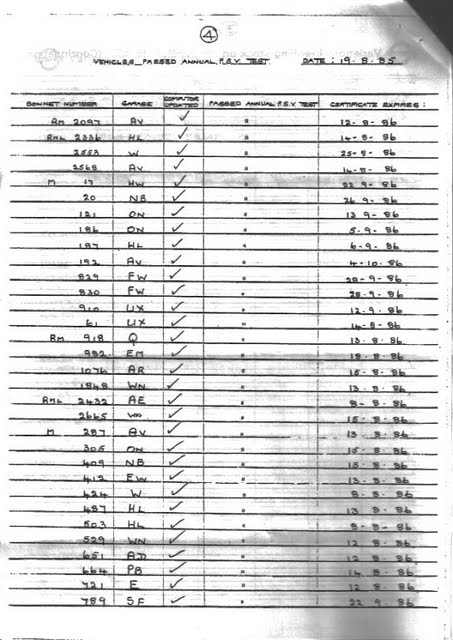 4
VEHICLES PASSED ANNUAL P.S.V. TEST DATE : 19.8.85
BONNET NUMBER GARAGE COMPUTOR UPDATED PASSED ANNUAL P.S.V. TEST CERTIFICATE EXPIRES :
RM 2097 AV ✓ " 12-8-86
RML 2336 HL ✓ " 14-8-86
2553 W ✓ " 25-8-86
2568 AV ✓ " 14-8-86
M 17 HW ✓ " 22 9-86
20 NB ✓ " 26 9-86
121 ON ✓ " 13 9-86
186 ON ✓ " 5-9-86
187 HL ✓ " 6-9-86
192 AV ✓ " 4-10-86
829 FW ✓ " 28-9-86
830 FW ✓ " 28.9-86
910 UX ✓ " 12.9-86
61 UX ✓ " 14-8-86
RM 918 Q ✓ " 13-8-86
982 EM ✓ " 18-8-86
1076 AR ✓ " 15-8-86
1848 WN ✓ " 13-8-86
RML 2432 AE ✓ " 8-8-86
2665 ✓ " 15-8-86
M 287 AV ✓ " 13-8-86
305 ON ✓ " 15-8-86
409 NB ✓ " 15-8-86
412 EW ✓ " 13-8-86
424 W ✓ " 8-8-86
487 HL ✓ " 13 8-86
503 HL ✓ " 8-8-86
529 WN ✓ " 12 8-86
651 AD ✓ " 12 8 86
664 PB ✓ " 14 8-86
721 E ✓ " 12 8-86
789 SF ✓ " 22 9-86